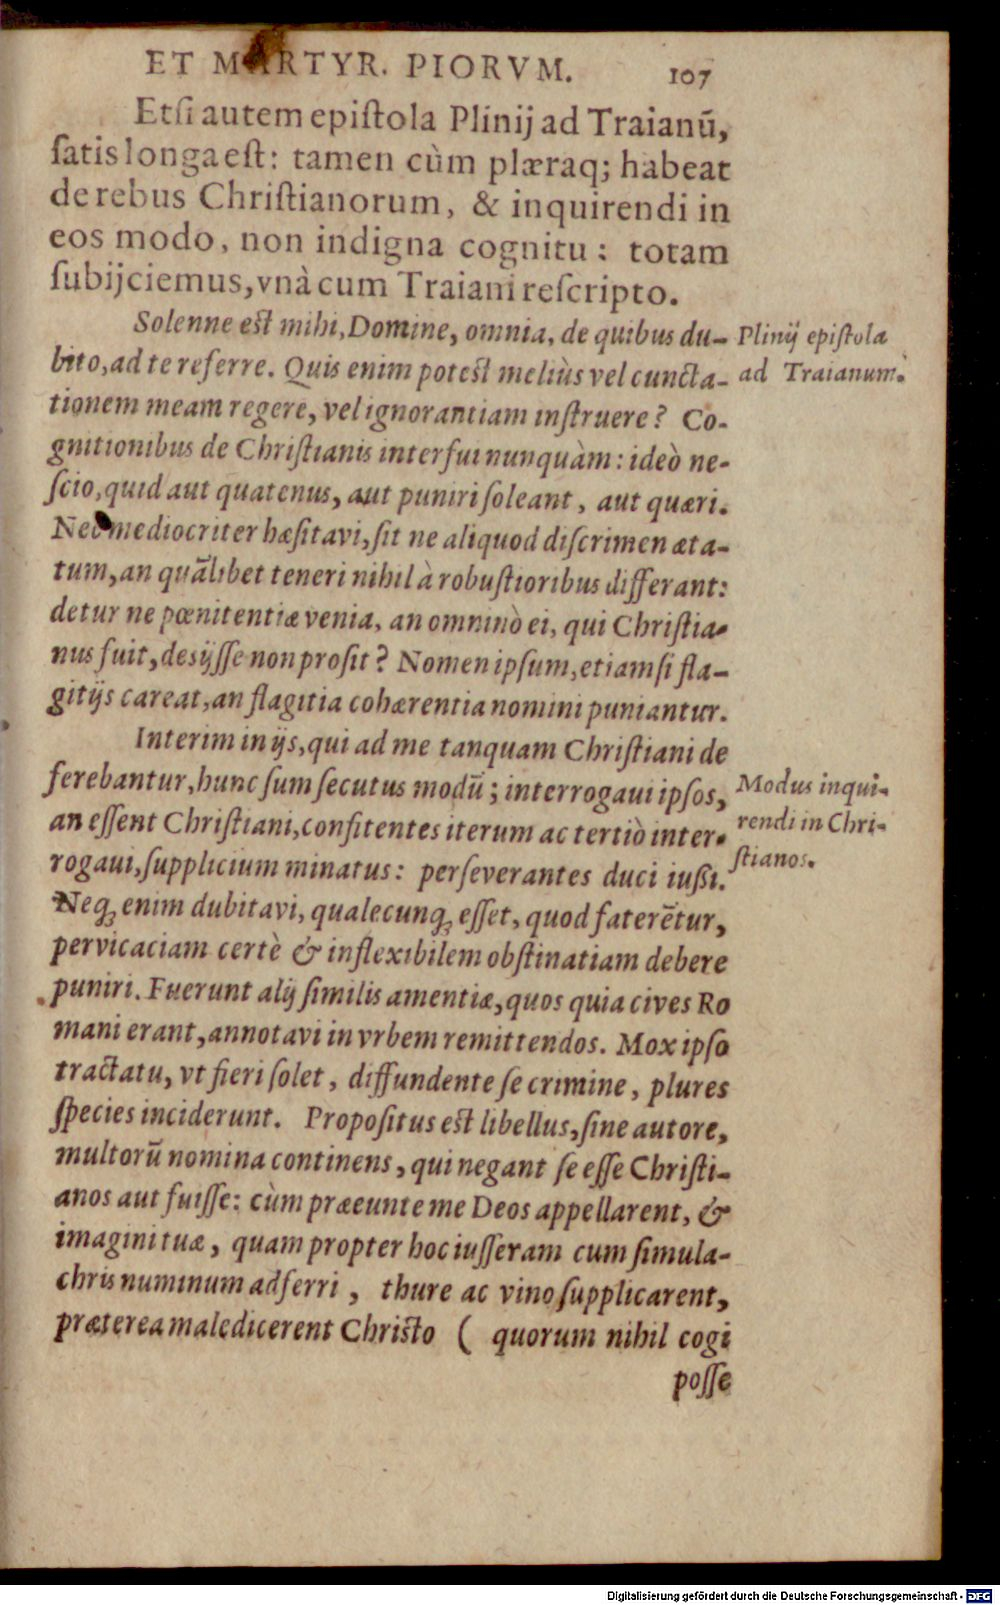 ET MARTYR. PIORVM. 107
Etſi autem epiſtola Plinij ad Traianū,
ſatis longa eſt: tamen cùm plæraq; habeat
de rebus Chriſtianorum, & inquirendi in
eos modo, non indigna cognitu: totam
ſubijciemus, vnà cum Traiani reſcripto.
Solenne eſt mihi, Domine, omnia, de quibus du-
bito, ad te referre. Quis enim poteſt meliùs vel cuncta-
tionem meam regere, vel ignorantiam inſtruere? Co-
gnitionibus de Chriſtianis interfui nunquàm: ideò ne-
ſcio, quid aut quatenus, aut puniri ſoleant, aut quæri.
Nec mediocriter hæſitavi, ſit ne aliquod diſcrimen æta-
tum, an quālibet teneri nihil à robuſtioribus differant:
detur ne pœnitentiæ venia, an omninò ei, qui Chriſtia-
nus fuit, deſijſſe non proſit? Nomen ipſum, etiamſi fla-
gitijs careat, an flagitia cohærentia nomini puniantur.
Interim in ijs, qui ad me tanquam Chriſtiani de
ferebantur, hunc ſum ſecutus modū; interrogaui ipſos,
an eſſent Chriſtiani, confitentes iterum ac tertiò inter-
rogaui, ſupplicium minatus: perſeverantes duci iußi.
Neq; enim dubitavi, qualecunq; eſſet, quod faterētur,
pervicaciam certè & inflexibilem obſtinatiam debere
puniri. Fuerunt alij ſimilis amentiæ, quos quia cives Ro
mani erant, annotavi in vrbem remittendos. Mox ipſo
tractatu, vt fieri ſolet, diffundente ſe crimine, plures
ſpecies inciderunt. Propoſitus eſt libellus, ſine autore,
multorū nomina continens, qui negant ſe eſſe Chriſti-
anos aut fuiſſe: cùm præeunte me Deos appellarent, &
imagini tuæ, quam propter hoc iuſſeram cum ſimula-
chris numinum adferri, thure ac vino ſupplicarent,
præterea maledicerent Chriſto ( quorum nihil cogi
poſſe
Plinij epiſtola
ad Traianum.
Modus inqui-
rendi in Chri-
ſtianos.
Digitalisierung gefördert durch die Deutsche Forschungsgemeinschaft - DFG